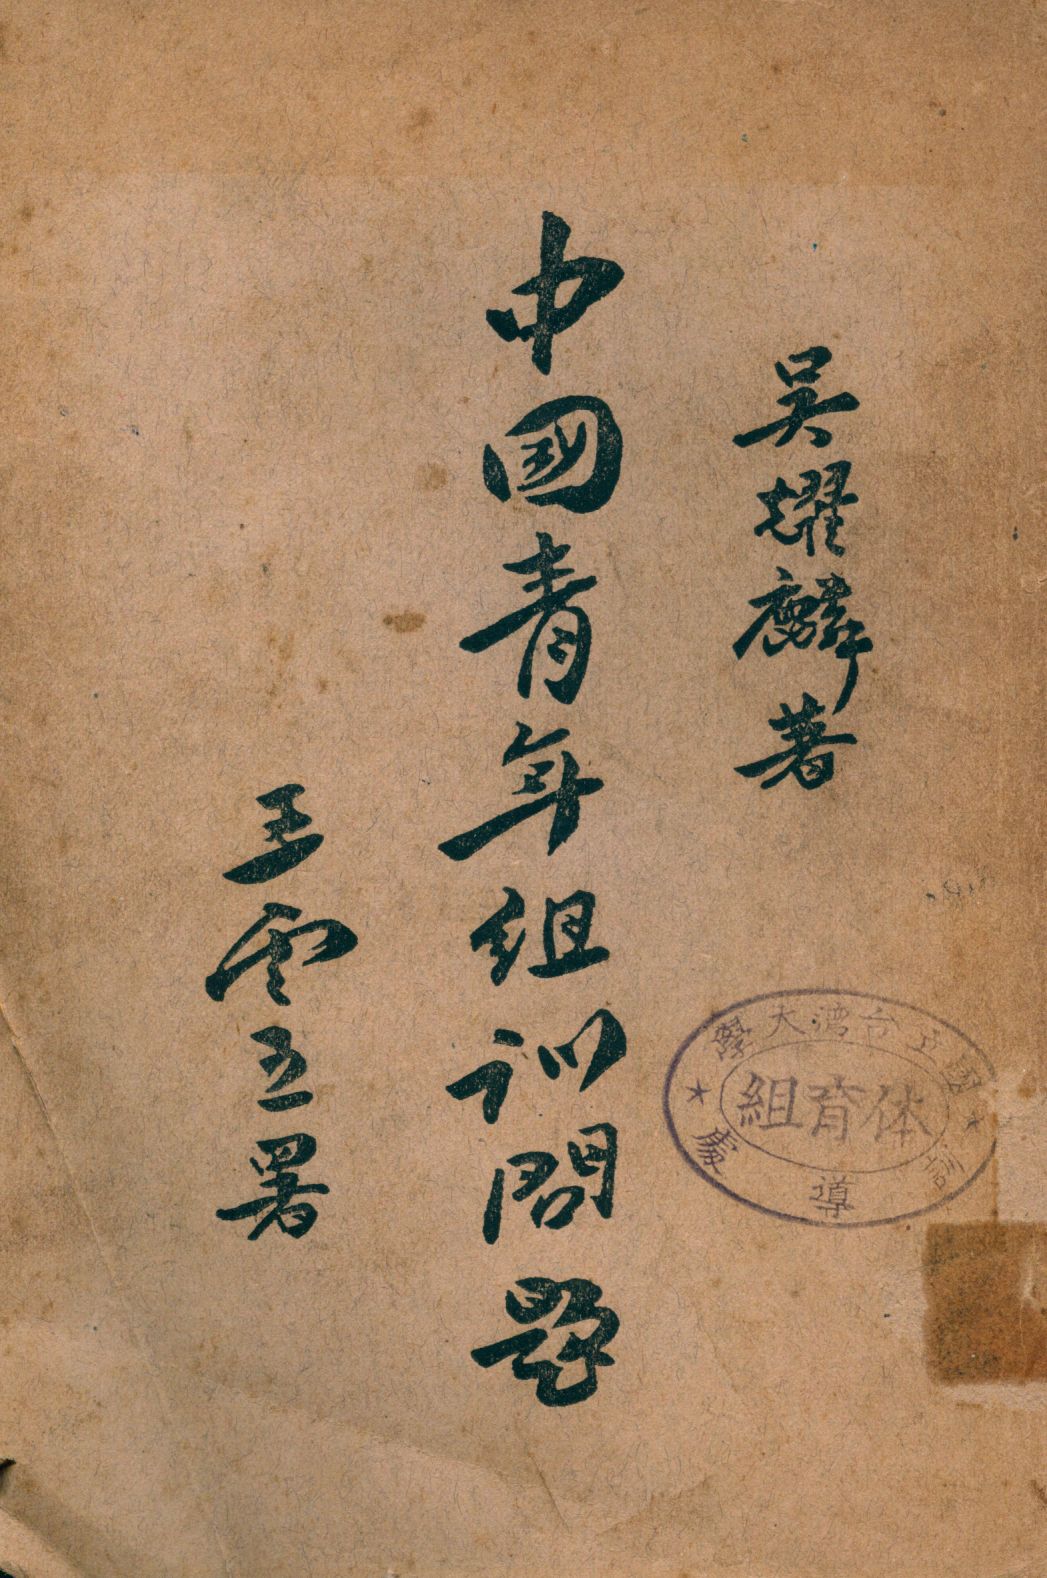 吳耀麟著
中國青年組訓問題
王雲五署
國立台湾大學
体育組
訓導處